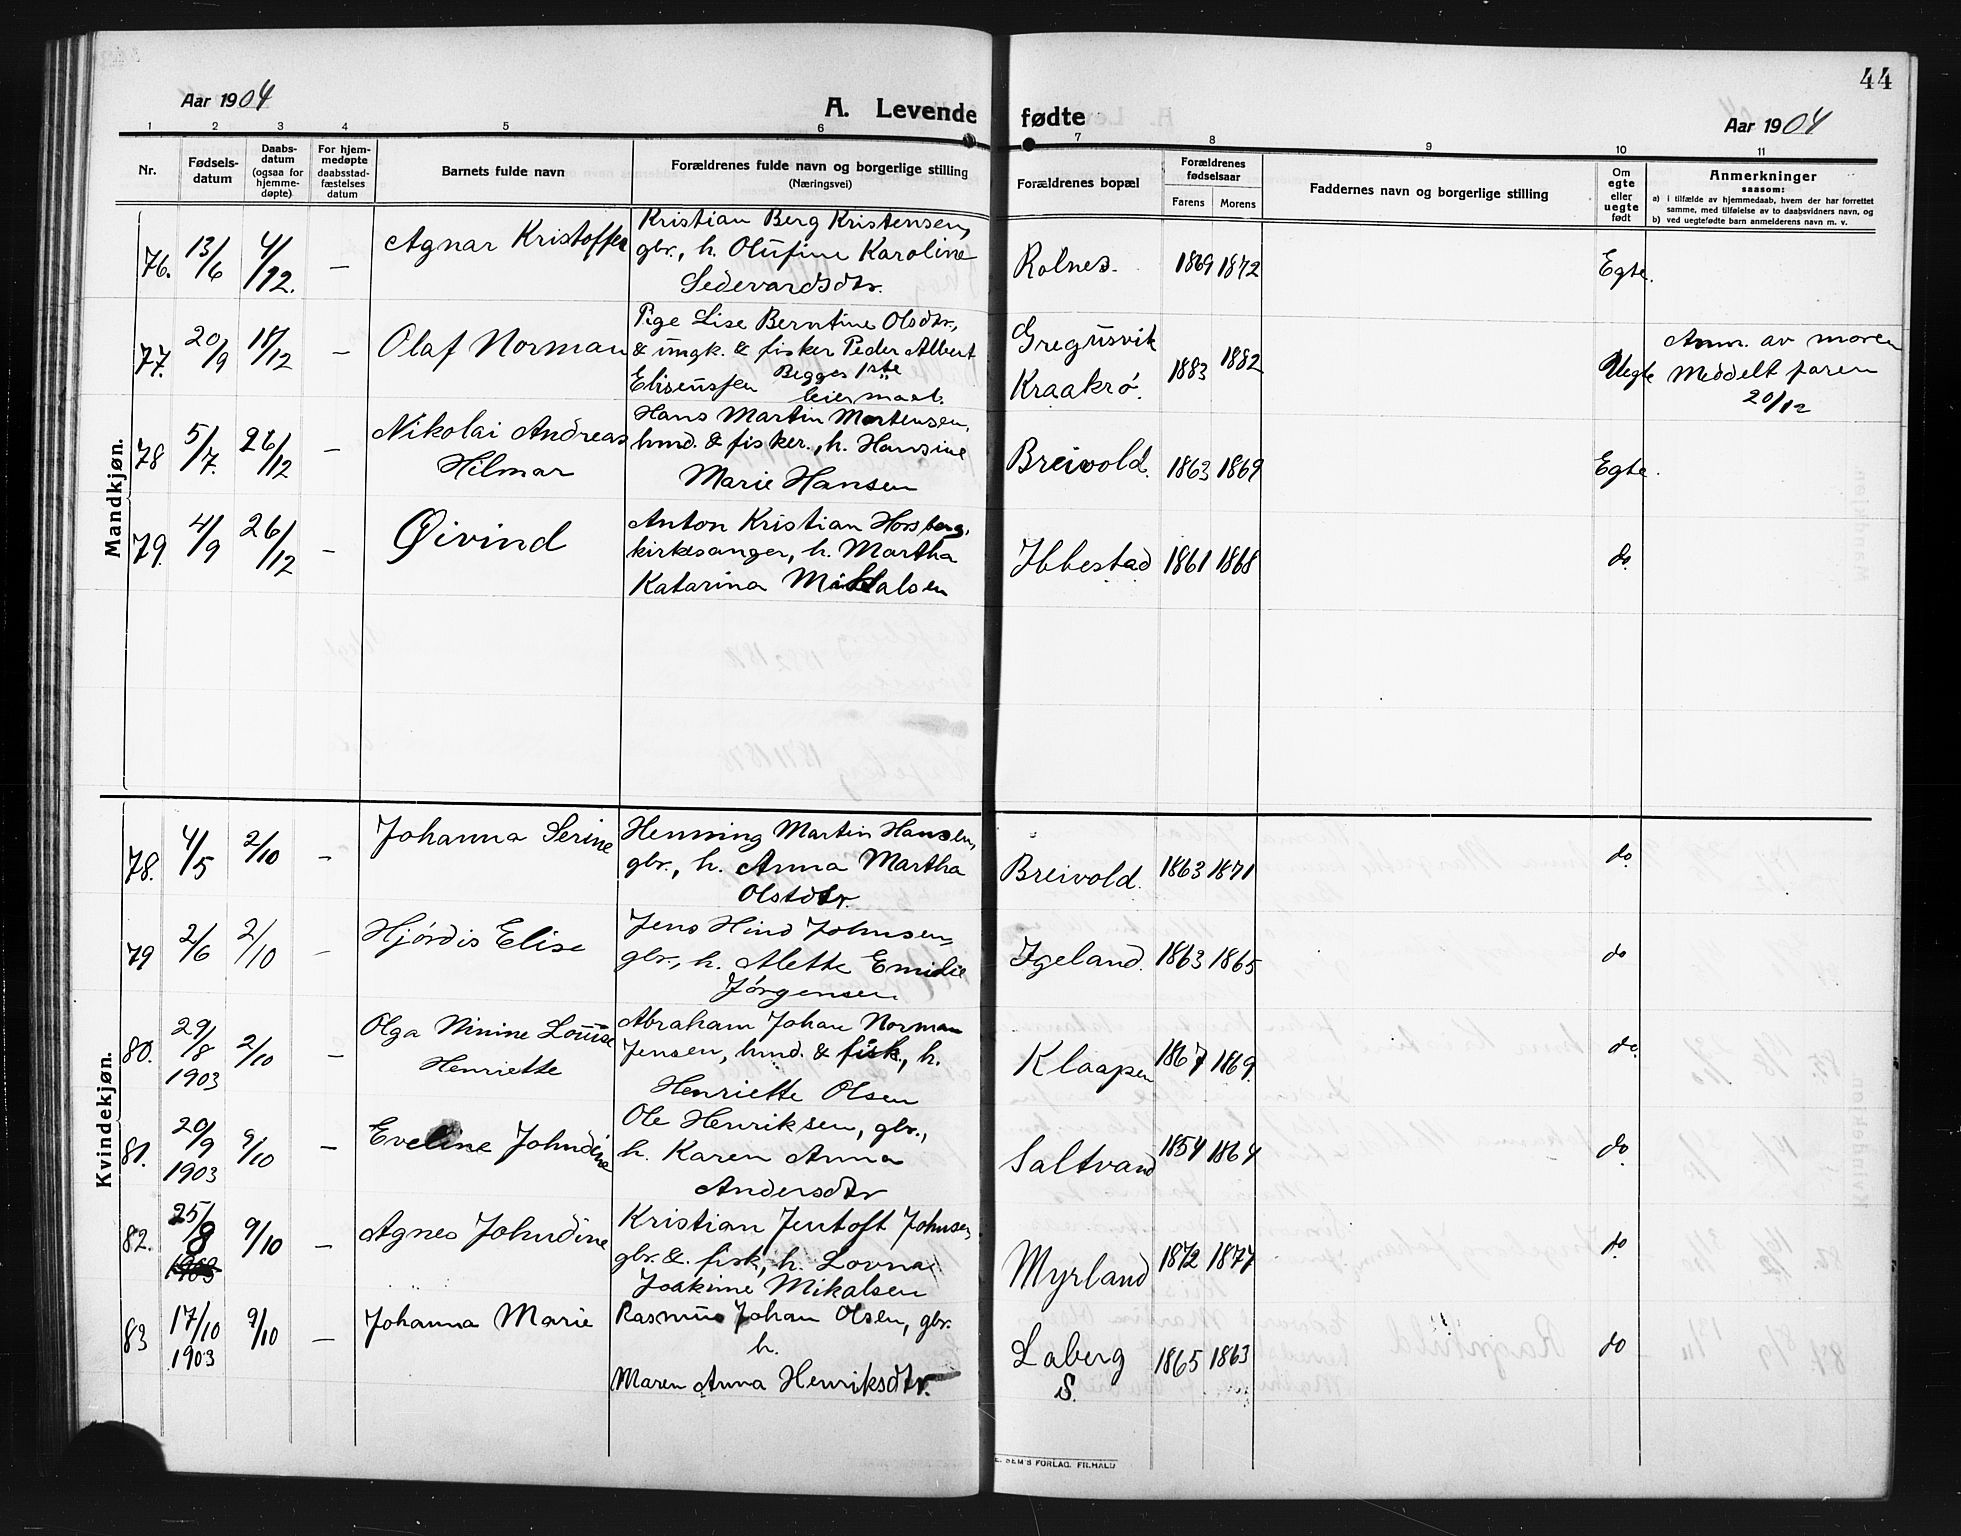 44
Aar 1904
A. Levende fødte
Aar 1904
1 2 3 4 5 6 7 8 9 10 11
Nr.
Fødsels-
datum
Daabs-
datum
(ogsaa for
hjemme-
døpte)
For hjem-
medøpte
daabsstad-
fæstelses
datum
Barnets fulde navn
Forældrenes fulde navn og borgerlige stilling
(Næringsvei)
Forældrenes bopæl
Forældrenes
fødselsaar
Farens Morens
Faddernes navn og borgerlige stilling
Om
egte
eller
uegte
født
Anmerkninger
saasom:
a) i tilfælde av hjemmedaab, hvem der har forrettet
samme, med tilføielse av to daabsvidners navn, og
b) ved uegtefødte barn anmelderens navn m. v.
Mandkjøn.
76. 13/6 4/12. — Agnar Kristoffer
Kristian Berg Kristensen,
gbr., h. Olufine Karoline
Sedevardsdtr.
Rolnes. 1869 1872 Egte.
77. 20/9 18/12 — Olaf Norman
Pige Lise Berntine Olsdtr.,
& ungk. & fisker Peder Albert
Eliseussen Begges 1ste
leiermaal.
Gregusvik
Kraakrø. 1883 1882 Uegte
Anm. av moren
Meddelt faren
20/12
78 5/7. 26/12 — Nikolai Andreas
Hilmar
Hans Martin Mortensen,
hmd. & fisker., h. Hansine
Marie Hansen
Breivold. 1863 1869 Egte.
79. 4/9 26/12 — Øivind
Anton Kristian Horsberg,
kirkesanger, h. Martha
Katarina Mikalsen
Ibbestad 1861 1868 do.
Kvindekjøn.
78. 4/5 2/10 — Johanna Serine
Henning Martin Hansen,
gbr., h. Anna Martha
Olstdtr.
Breivold. 1863 1871 do.
79 2/6 2/10 — Hjørdis Elise
Jens Hind Johnsen,
gbr., h. Alette Emilie
Jørgensen
Igeland. 1863 1865 do
80. 29/8 1903 2/10 — Olga Ninine Louise
Henriette
Abraham Johan Norman
Jensen, hmd. & fisk., h.
Henriette Olsen
Klaapen 1867 1869. do.
81. 20/9 1903 9/10 — Eveline Johndine
Ole Henriksen, gbr.,
h. Karen Anna
Andersdtr
Saltvand 1854 1864 do.
82. 25/8 1903 9/10 — Agnes Johndine
Kristian Jentoft Johnsen,
gbr. & fisk, h. Lovna
Joakime Mikalsen
Myrland 1872 1877 do.
83 17/10 1903 9/10 — Johanna Marie
Rasmus Johan Olsen, gbr.
h.
Maren Anna Henriksdtr.
Laberg
S. 1865 1863 do
E. SEM'S FORLAG. FR.HALD